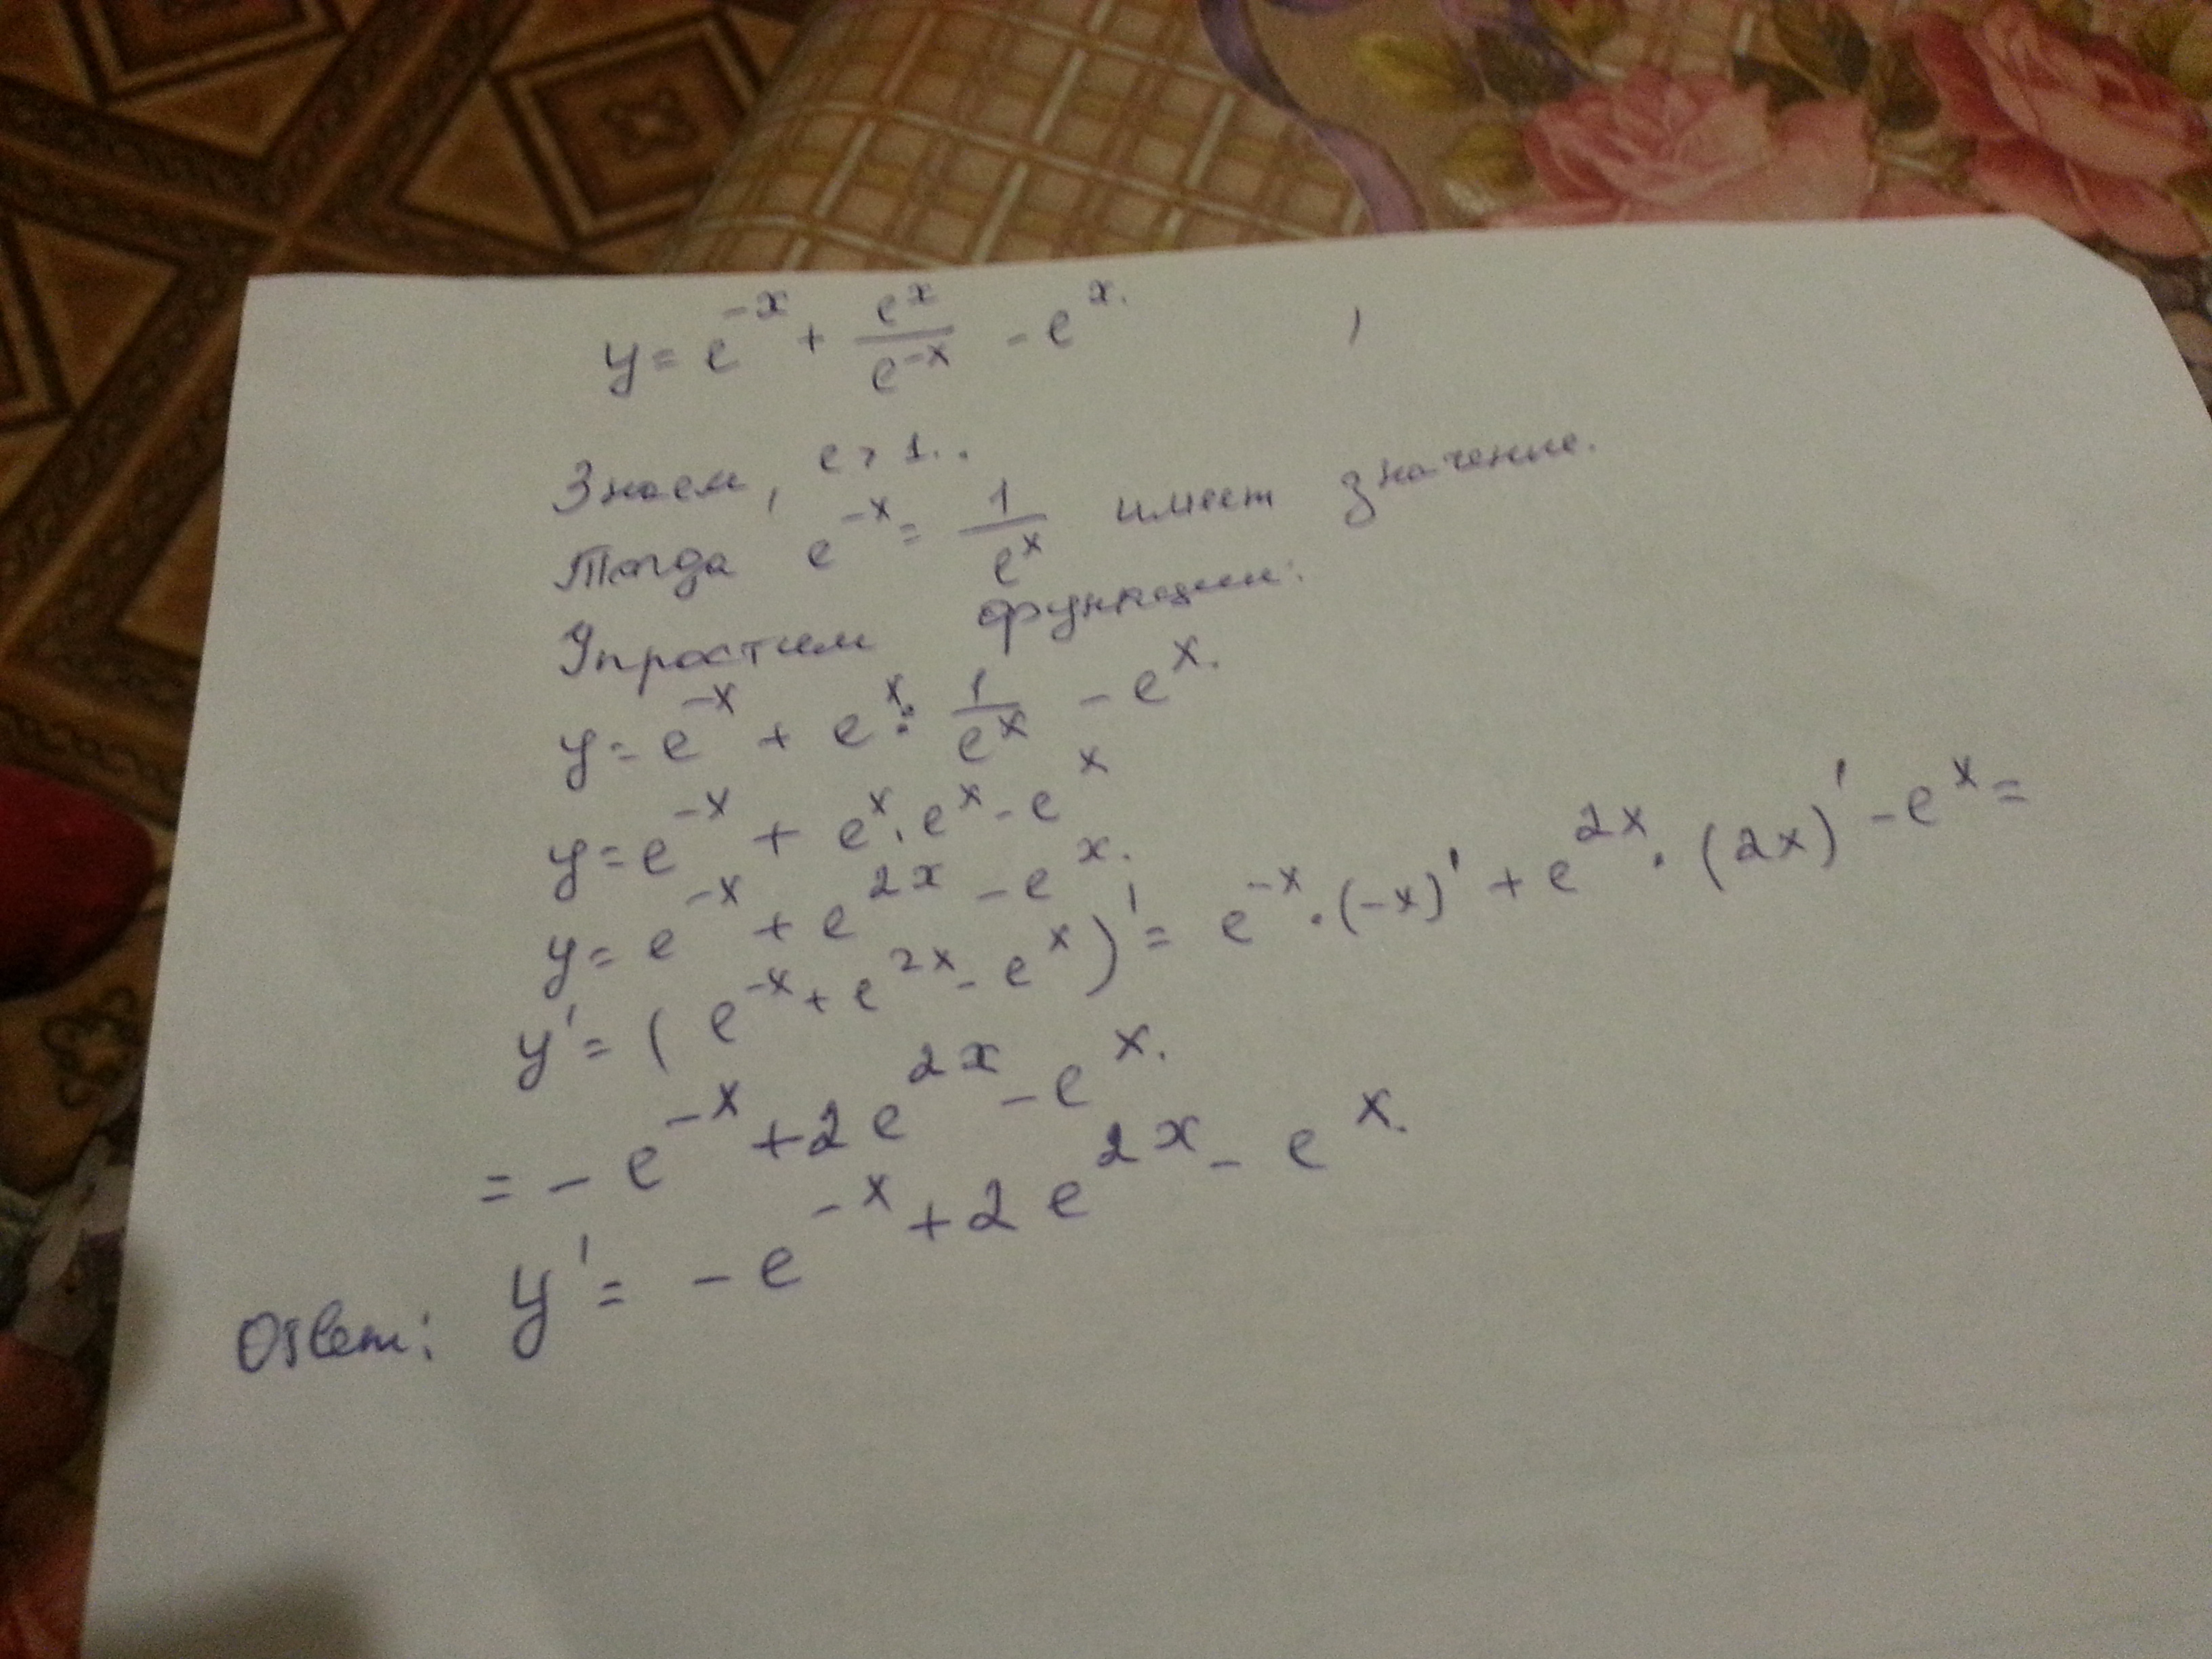 y = e^{-x} + \frac{e^x}{e^{-x}} - e^x.
Знаем, e > 1..
Тогда e^{-x} = \frac{1}{e^x} имеет значение.
Упростим функции:
y = e^{-x} + e^x : \frac{1}{e^x} - e^x.
y = e^{-x} + e^x · e^x - e^x
y = e^{-x} + e^{2x} - e^x.
y' = (e^{-x} + e^{2x} - e^x)' = e^{-x} · (-x)' + e^{2x} · (2x)' - e^x =
= - e^{-x} + 2e^{2x} - e^x.
Ответ: y' = - e^{-x} + 2e^{2x} - e^x.